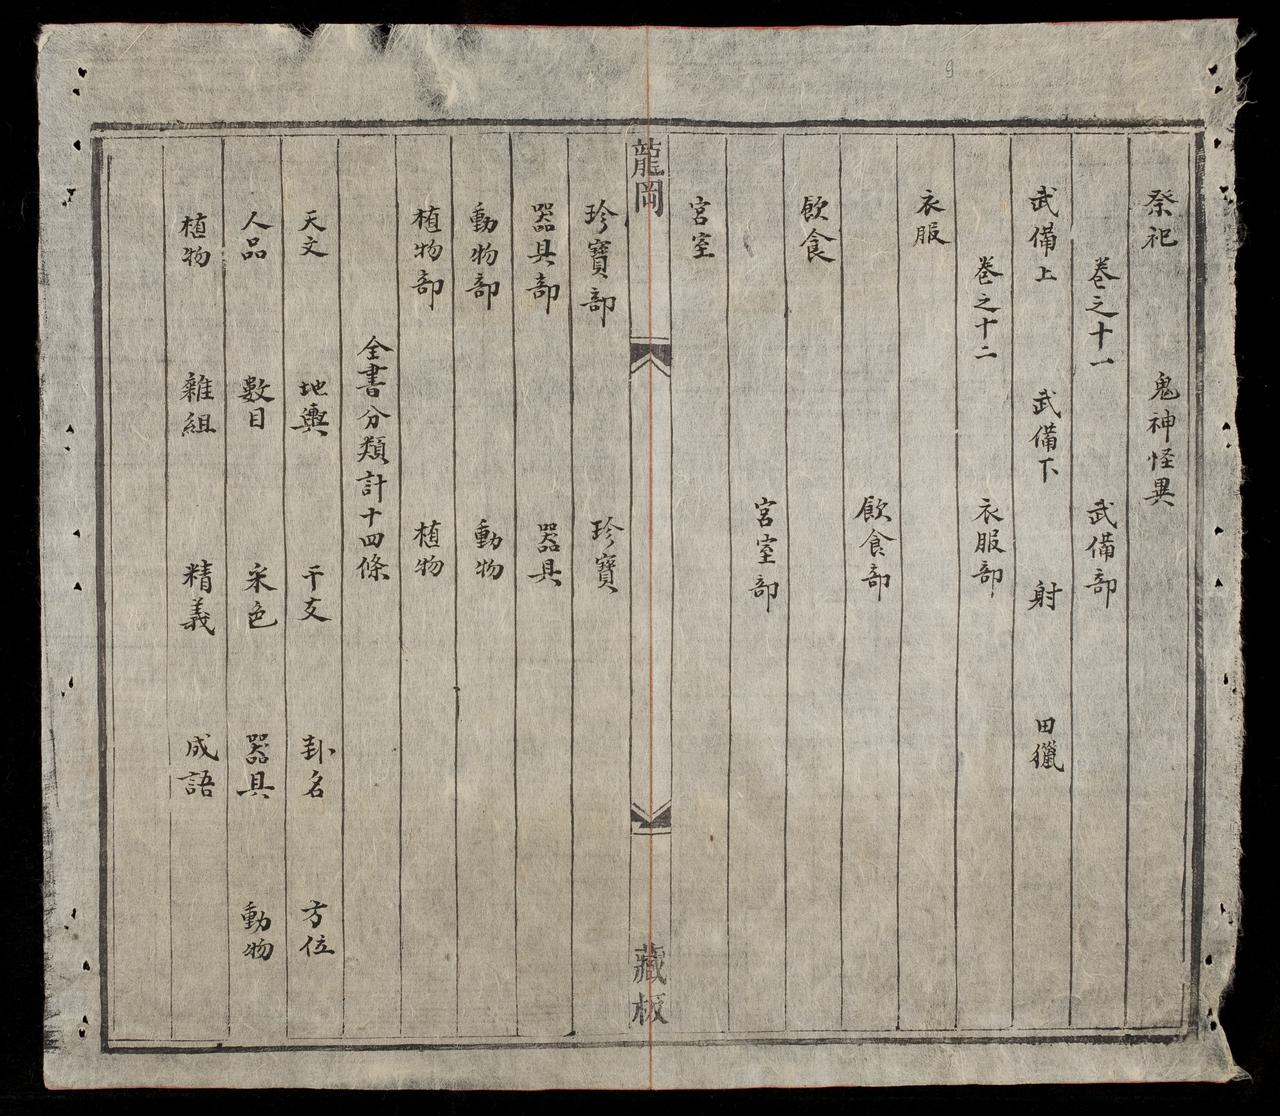 祭祀 鬼神怪異
卷之十一 武備部
武備上 武備下 射 田獵
卷之十二 衣服部
衣服
飲食部
飲食
宮室部
宮室
龍岡 藏板
珍寶部 珍寶
器具部 器具
動物部 動物
植物部 植物
全書分類計十四條
天文 地輿 干支 卦名 方位
人品 數目 采色 器具 動物
植物 雜組 精義 成語